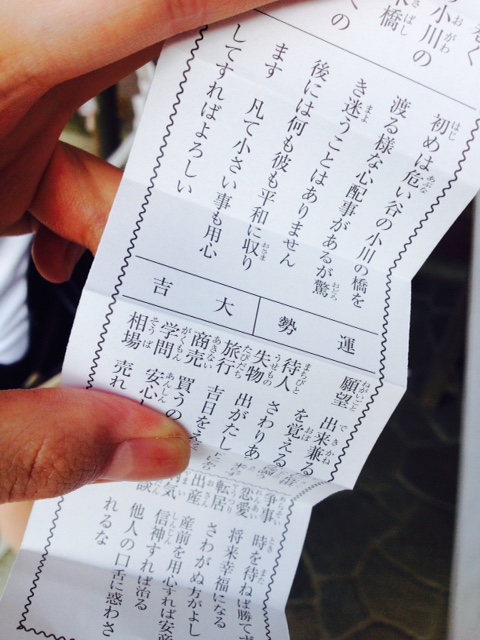 ぞく
の小川の
橋
くの
初めは危い谷の小川の橋を
渡る様な心配事があるが驚
き迷うことはありません
後には何も彼も平和に取り
ます 凡て小さい事も用心
してすればよろしい
運勢
大吉
願望 出来兼る
待人 さわりあ
失物
を覚える
旅行 出がたし
商売 吉日をえ
学問 買うの
相場 安心し
売れ
争事 時を待ねば勝てず
恋愛 将来幸福になる
転居 さわがぬ方がよし
出産 産前を用心すれば安産
病気 信神すれば治る
談 他人の口舌に惑わさ
れるな